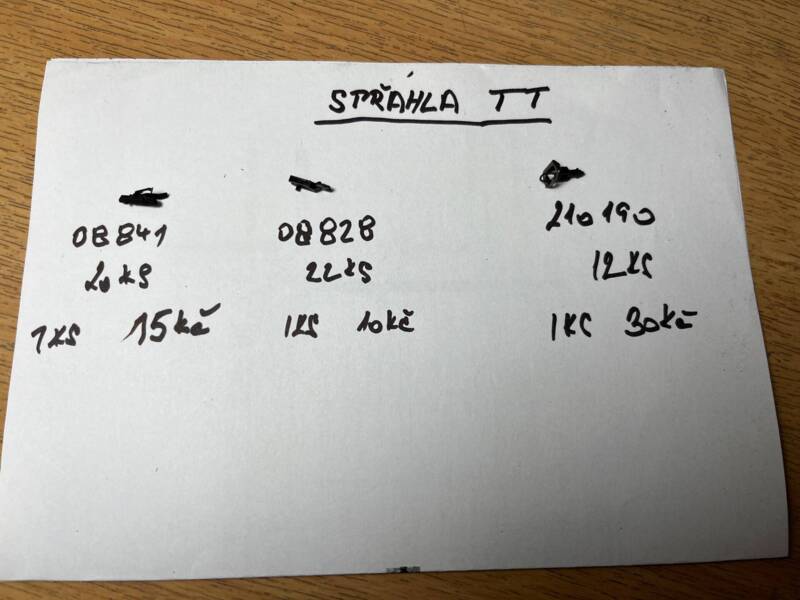 SPŘÁHLA TT
08841 08828 210190
20KS 22KS 12KS
1KS 15Kč 1KS 10Kč 1KS 30Kč